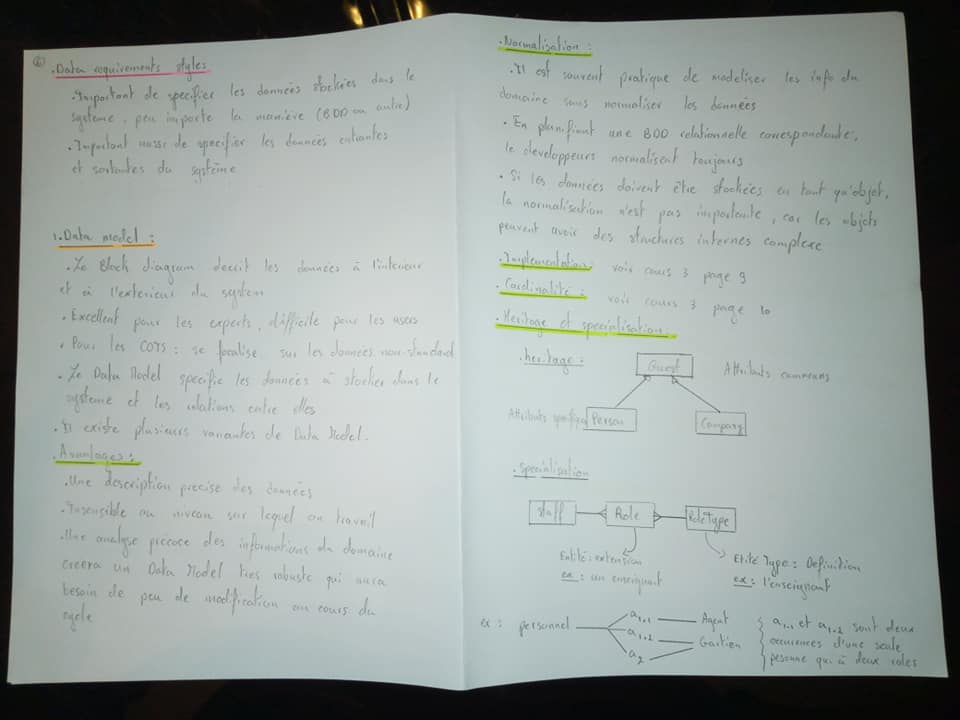 6
. Data requirements styles
. Important de specifier les données stockées dans le
système, peu importe la manière (BDD ou autre)
. Important aussi de specifier les données entrantes
et sortantes du système
1. Data model :
. Le Block diagram decrit les données à l'interieur
et à l'exterieur du system
. Excellent pour les experts, difficile pour les users
. Pour les COTS : se focalise sur les données non-standard
. Le Data Model specifie les données à stocker dans le
systeme et les relations entre elles
. Il existe plusieurs variantes de Data Model.
. Avantages :
. Une description precise des données
. Insensible au niveau sur lequel on travail
. Une analyse précoce des informations du domaine
creera un Data Model très robuste qui aura
besoin de peu de modification au cours du
cycle
. Normalisation :
. Il est souvent pratique de modeliser les info du
domaine sans normaliser les données
. En planifiant une BDD relationnelle correspondante,
le developpeurs normalisent toujours
. Si les données doivent être stockées en tant qu'objet,
la normalisation n'est pas importante, car les objets
peuvent avoir des structures internes complexe
. Implementation : voir cours 3 page 9
. Cardinalité : voir cours 3 page 10
. Heritage et specialisation :
. heritage :
Guest
Attributs communs
Attributs specifiques
Person
Company
. specialisation
Staff
Role
RoleType
Entité : extension
ex : un enseignant
Etité Type : Definition
ex : l'enseignant
ex : personnel
a1.1 Agent
a1.2 Gardien
a2
a1.1 et a1.2 sont deux
occurences d'une seule
personne qui à deux roles